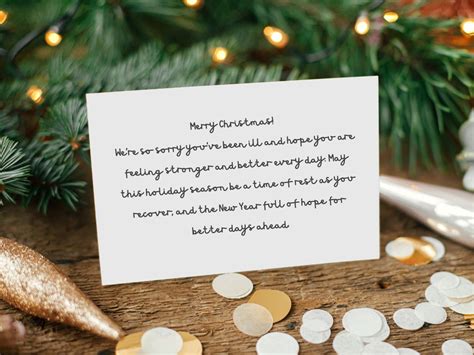 Merry Christmas!
We're so sorry you've been ill and hope you are
feeling stronger and better every day. May
this holiday season be a time of rest as you
recover, and the New Year full of hope for
better days ahead